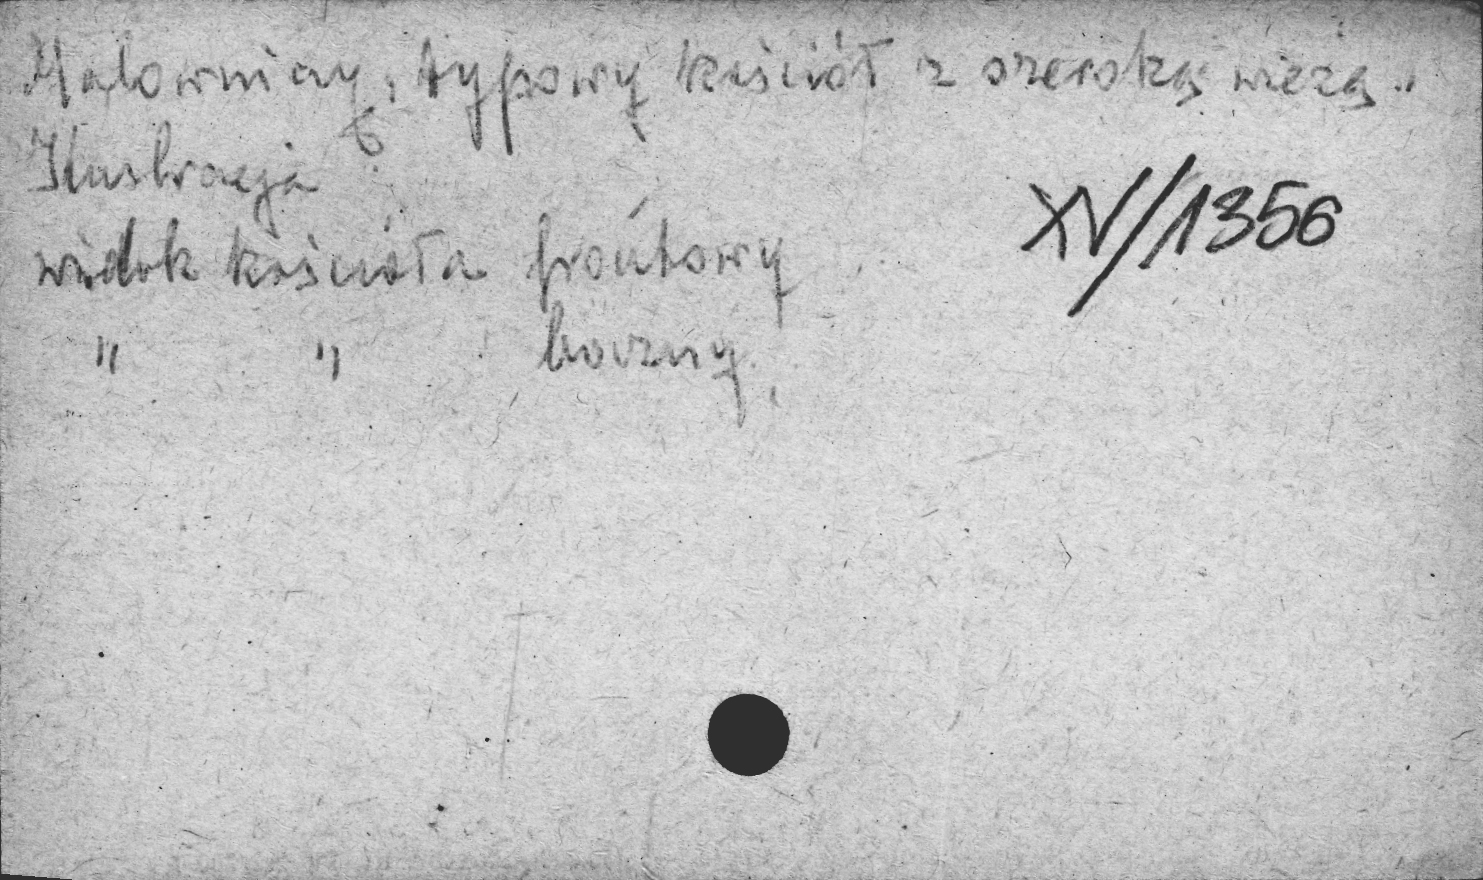 Malowniczy, typowy kościół z szeroką wieżą."
Ilustracja
XV/1356
widok kościoła frontowy
" " boczny